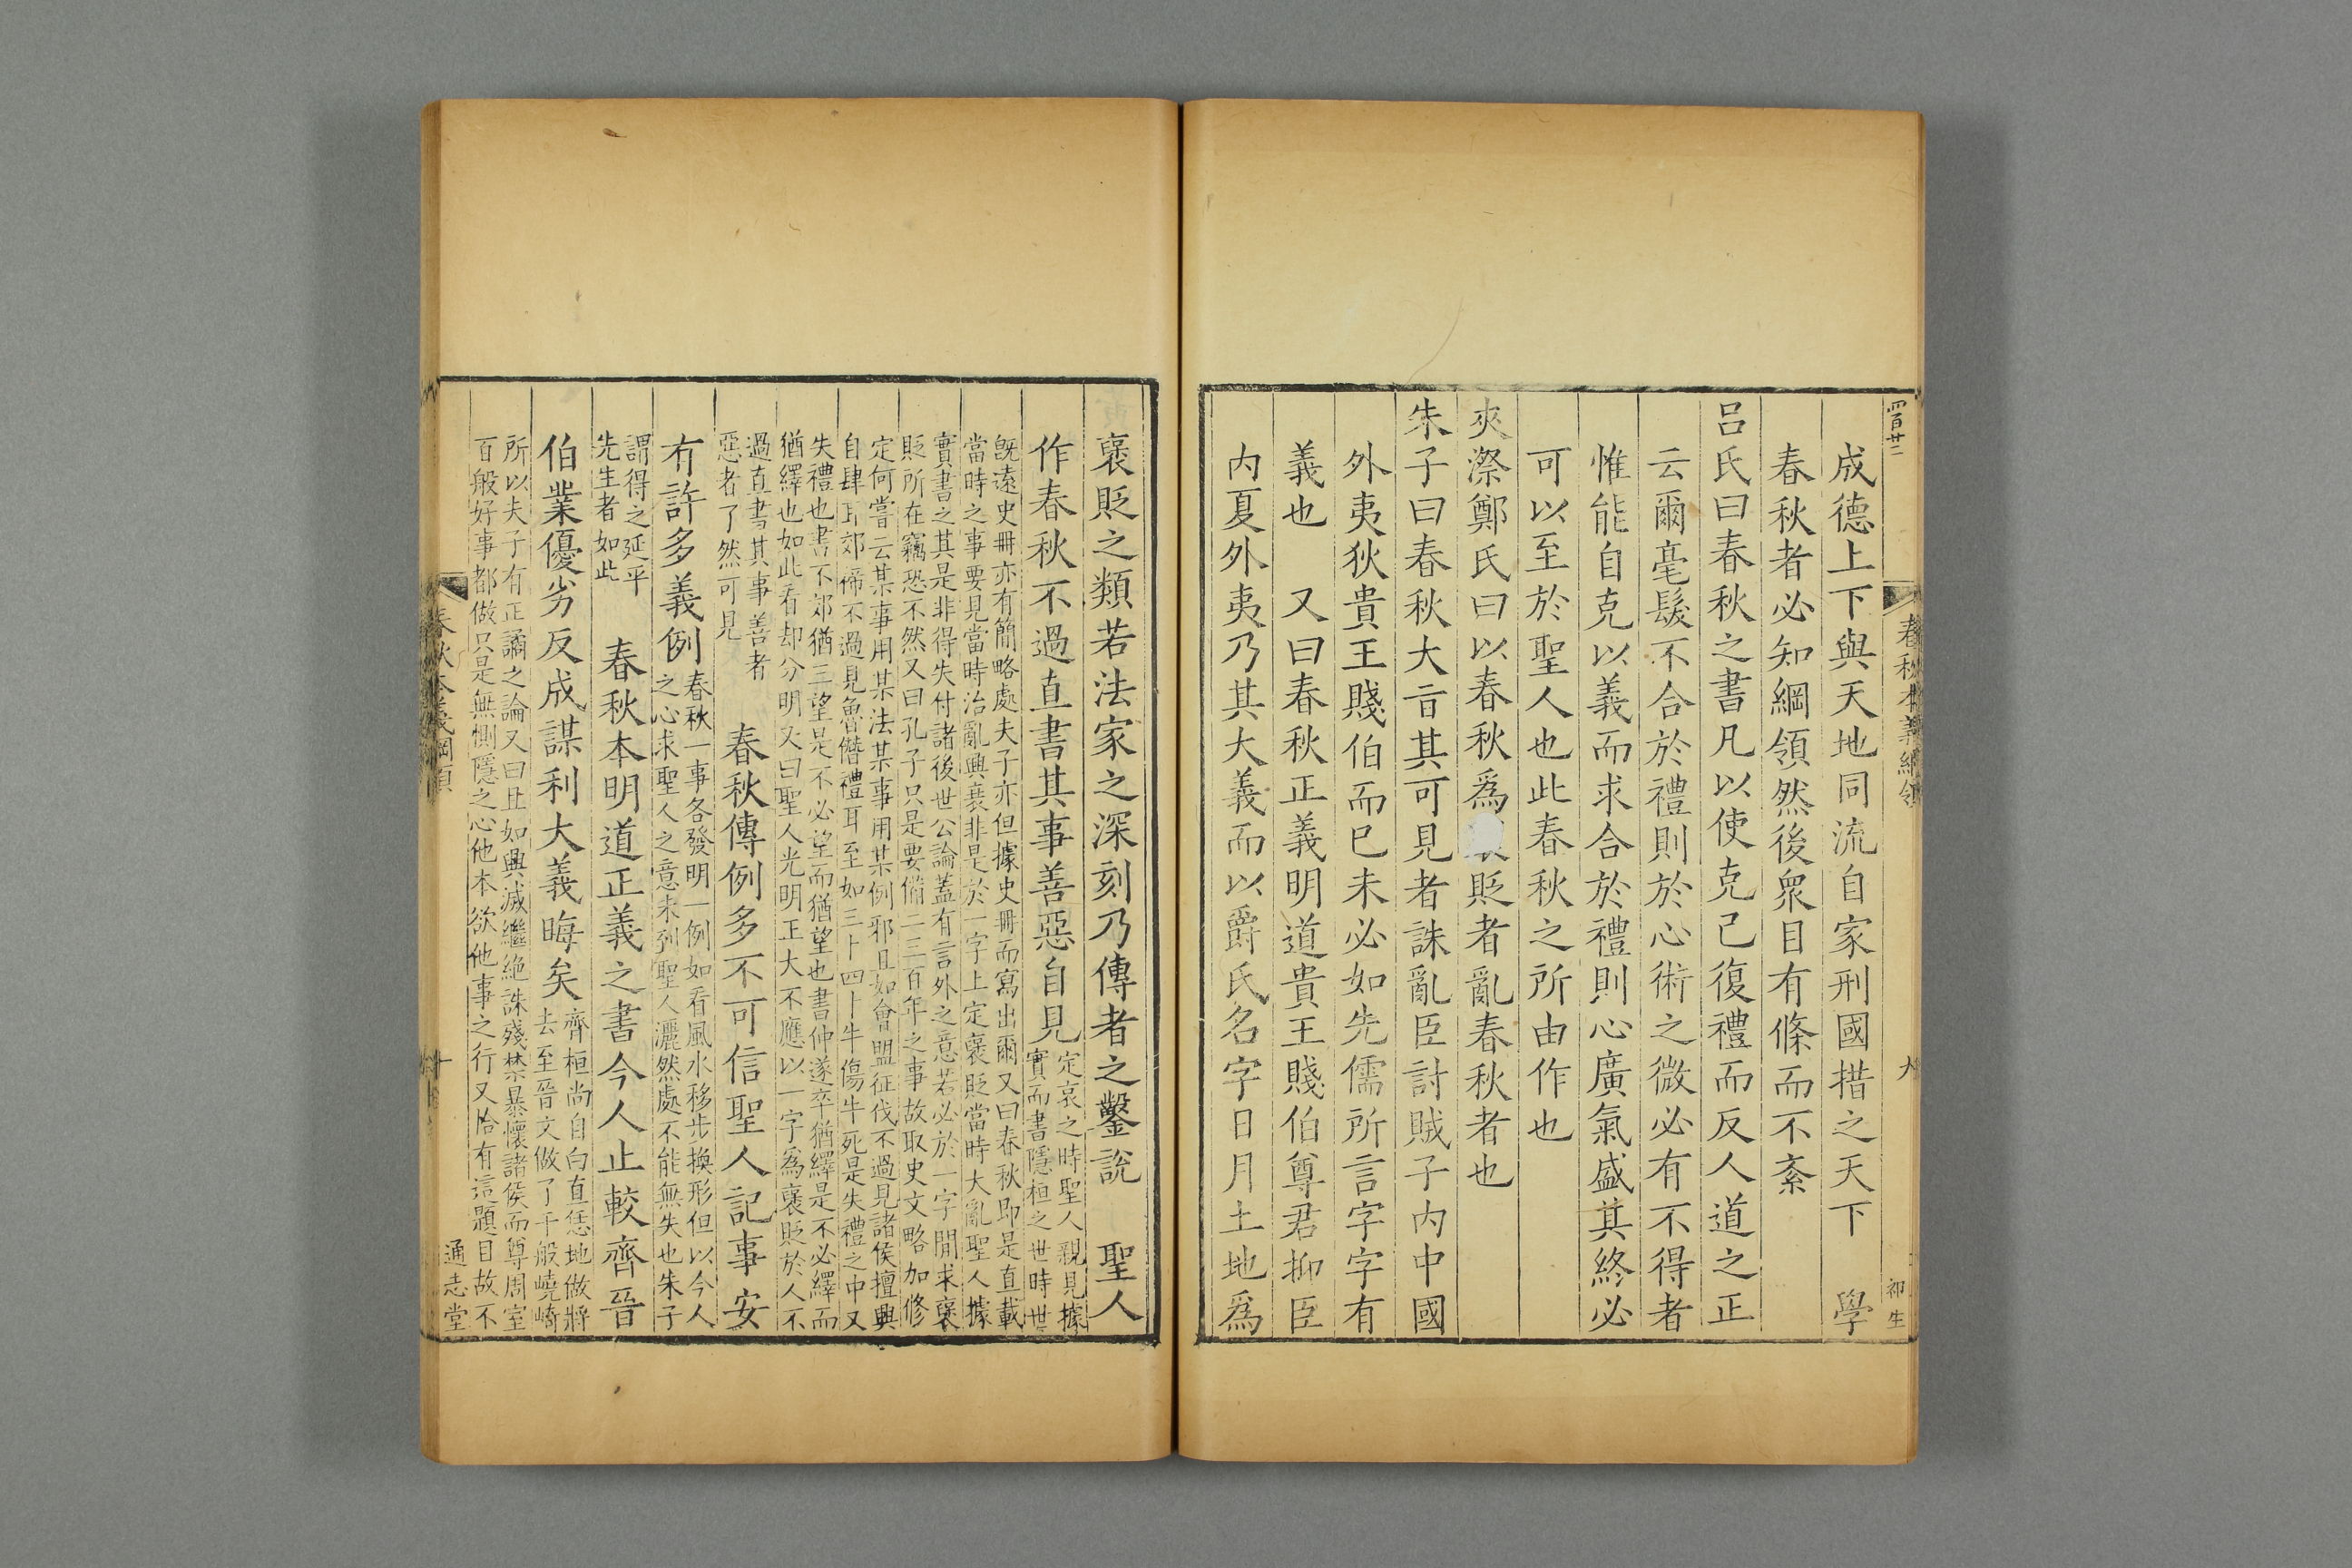 四百廿二
春秋本義綱領
九
祁生
成德上下與天地同流自家刑國措之天下 學
春秋者必知綱領然後衆目有條而不紊
呂氏曰春秋之書凡以使克己復禮而反人道之正
云爾毫髮不合於禮則於心術之微必有不得者
惟能自克以義而求合於禮則心廣氣盛其終必
可以至於聖人也此春秋之所由作也
夾漈鄭氏曰以春秋爲貶者亂春秋者也
朱子曰春秋大旨其可見者誅亂臣討賊子內中國
外夷狄貴王賤伯而已未必如先儒所言字字有
義也 又曰春秋正義明道貴王賤伯尊君抑臣
內夏外夷乃其大義而以爵氏名字日月土地爲
襃貶之類若法家之深刻乃傳者之鑿說 聖人
作春秋不過直書其事善惡自見
定哀之時聖人親見據
實而書隱桓之世時世
旣遠史冊亦有簡略處夫子亦但據史冊而寫出爾又曰春秋即是直載
當時之事要見當時治亂興衰非是於一字上定襃貶當時大亂聖人據
實書之其是非得失付諸後世公論蓋有言外之意若必於一字閒求襃
貶所在竊恐不然又曰孔子只是要備二三百年之事故取史文略加修
定何嘗云某事用某法某事用某例邪且如會盟征伐不過見諸侯擅興
自肆耳郊禘不過見魯僭禮耳至如三卜四卜牛傷牛死是失禮之中又
失禮也書不郊猶三望是不必望而猶望也書仲遂卒猶繹是不必繹而
猶繹也如此看却分明又曰聖人光明正大不應以一字爲襃貶於人不
過直書其事善者
惡者了然可見
春秋傳例多不可信聖人記事安
有許多義例
春秋一事各發明一例如看風水移步換形但以今人
之心求聖人之意未到聖人灑然處不能無失也朱子
謂得之延平
先生者如此
春秋本明道正義之書今人止較齊晉
伯業優劣反成謀利大義晦矣
齊桓尚自白直恁地做將
去至晉文做了千般嶢崎
所以夫子有正譎之論又曰且如興滅繼絕誅殘禁暴懷諸侯而尊周室
百般好事都做只是無惻隱之心他本欲他事之行又恰有這題目故不
春秋本義綱領
十
通志堂